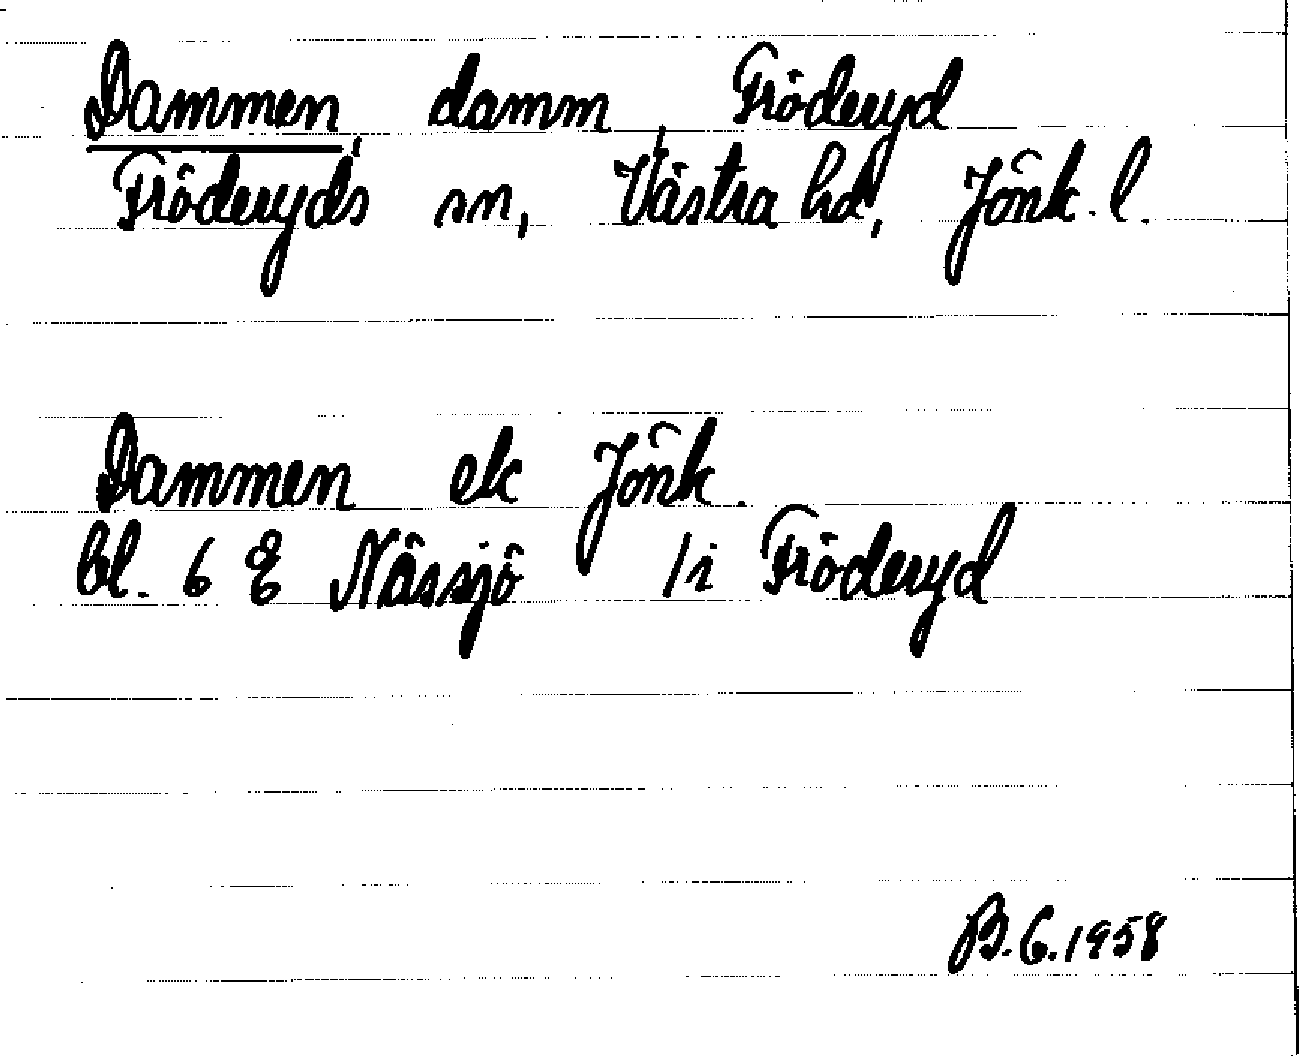 Dammen, damm, Fröderyd
Fröderyds sn, Västra hd, Jönk. l.
Dammen ek Jönk.
bl. 6 E Nässjö /i Fröderyd
B.G. 1958